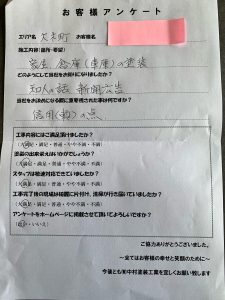 お客様アンケート
エリア名 大木町 お客様名
施工内容(箇所・希望)
家屋 倉庫(車庫)の塗装
どのようにして当社をお知りになりましたか?
知人の話 新聞広告
当社をお決めになる際に重要視された事は何ですか?
信用(約)の点
工事内容にはご満足頂けましたか?
(大満足・満足・普通・やや不満・不満)
塗装の出来栄えはいかがでしょうか?
(大満足・満足・普通・やや不満・不満)
スタッフは敏速対応できていましたか?
(大満足・満足・普通・やや不満・不満)
工事完了後の現場は綺麗に片付け、清掃が行き届いていましたか?
(大満足・満足・普通・やや不満・不満)
アンケートをホームページに掲載させて頂いてよろしいですか?
(はい・いいえ)
ご協力ありがとうございました。
～全てはお客様の幸せと笑顔のために～
今後とも㈱中村塗装工業を宜しくお願い致します